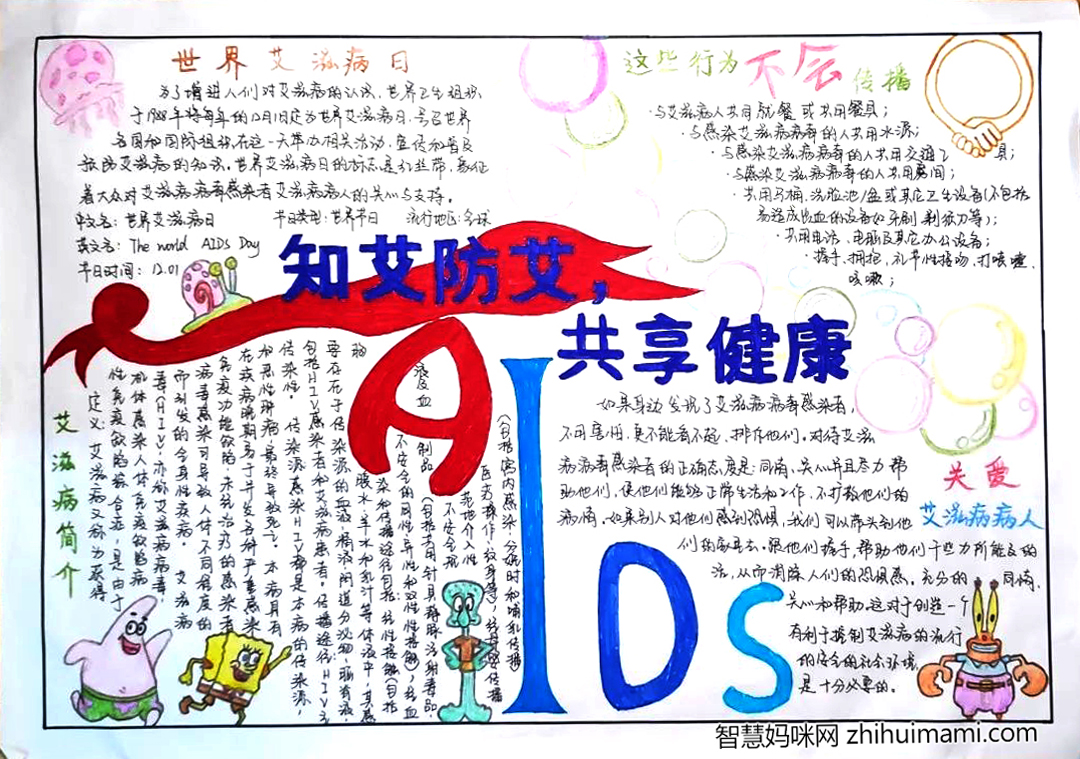 世界艾滋病日
为了增进人们对艾滋病的认识,世界卫生组织
于1988年将每年的12月1日定为世界艾滋病日,号召世界
各国和国际组织在这一天举办相关活动,宣传和普及
预防艾滋病的知识。世界艾滋病日的标志是红丝带,象征
着大众对艾滋病病毒感染者艾滋病病人的关心与支持。
中文名:世界艾滋病日 节日类型:世界节日 流行地区:全球
英文名:The world AIDS Day
节日时间:12.01
这些行为不会传播
·与艾滋病人共同就餐或共用餐具;
·与感染艾滋病病毒的人共用水源;
·与感染艾滋病病毒的人共用交通工具;
·与感染艾滋病病毒的人共用房间;
·共用马桶、洗脸池/盆或其它卫生设备(不包括
易造成出血的设备如牙刷、剃须刀等);
·共用电话、电脑及其它办公设备;
·握手、拥抱、礼节性接吻、打喷嚏、
咳嗽;
知艾防艾,
共享健康
AIDs
艾滋病简介
定义:艾滋病又称为获得
性免疫缺陷综合症,是由于
机体感染人体免疫缺陷病
毒(HIV),亦称艾滋病病毒,
而引发的全身性疾病。 艾滋病
病毒感染可导致人体不同程度的
免疫功能缺陷,未经治疗的感染者
在疾病晚期易于并发各种严重感染
和恶性肿瘤,最终导致死亡。本病具有
传染性。 传染源:感染HIV都是本病的传染源,
包括HIV感染者和艾滋病患者。传播途径:HIV主
要存在于传染源的血液、精液、阴道分泌物、脑脊液、
胸腹水、羊水和乳汁等体液中,其感
染和传播途径包括:性接触(包括
不安全的同性、异性和双性接触),输血
液及血制品(包括共用针具静脉注射毒品、
不安全规范地介入性
医疗操作、纹身等),
(包括宫内感染、分娩时和哺乳传播)
关爱
艾滋病病人
如果身边发现了艾滋病病毒感染者,
不用害怕,更不能看不起、排斥他们。对待艾滋
病病毒感染者的正确态度是:同情、关心并且尽力帮
助他们,使他们能够正常生活和工作,不打散他们的
病情。如果别人对他们感到恐惧,我们可以带头到他
们的家里去。跟他们握手,帮助他们干些力所能及的
活,从而消除人们的恐惧感。充分的同情、
关心和帮助,这对于创造一个
有利于控制艾滋病的流行
的安全的社会环境,
是十分必要的。
智慧妈咪网 zhihuimami.com